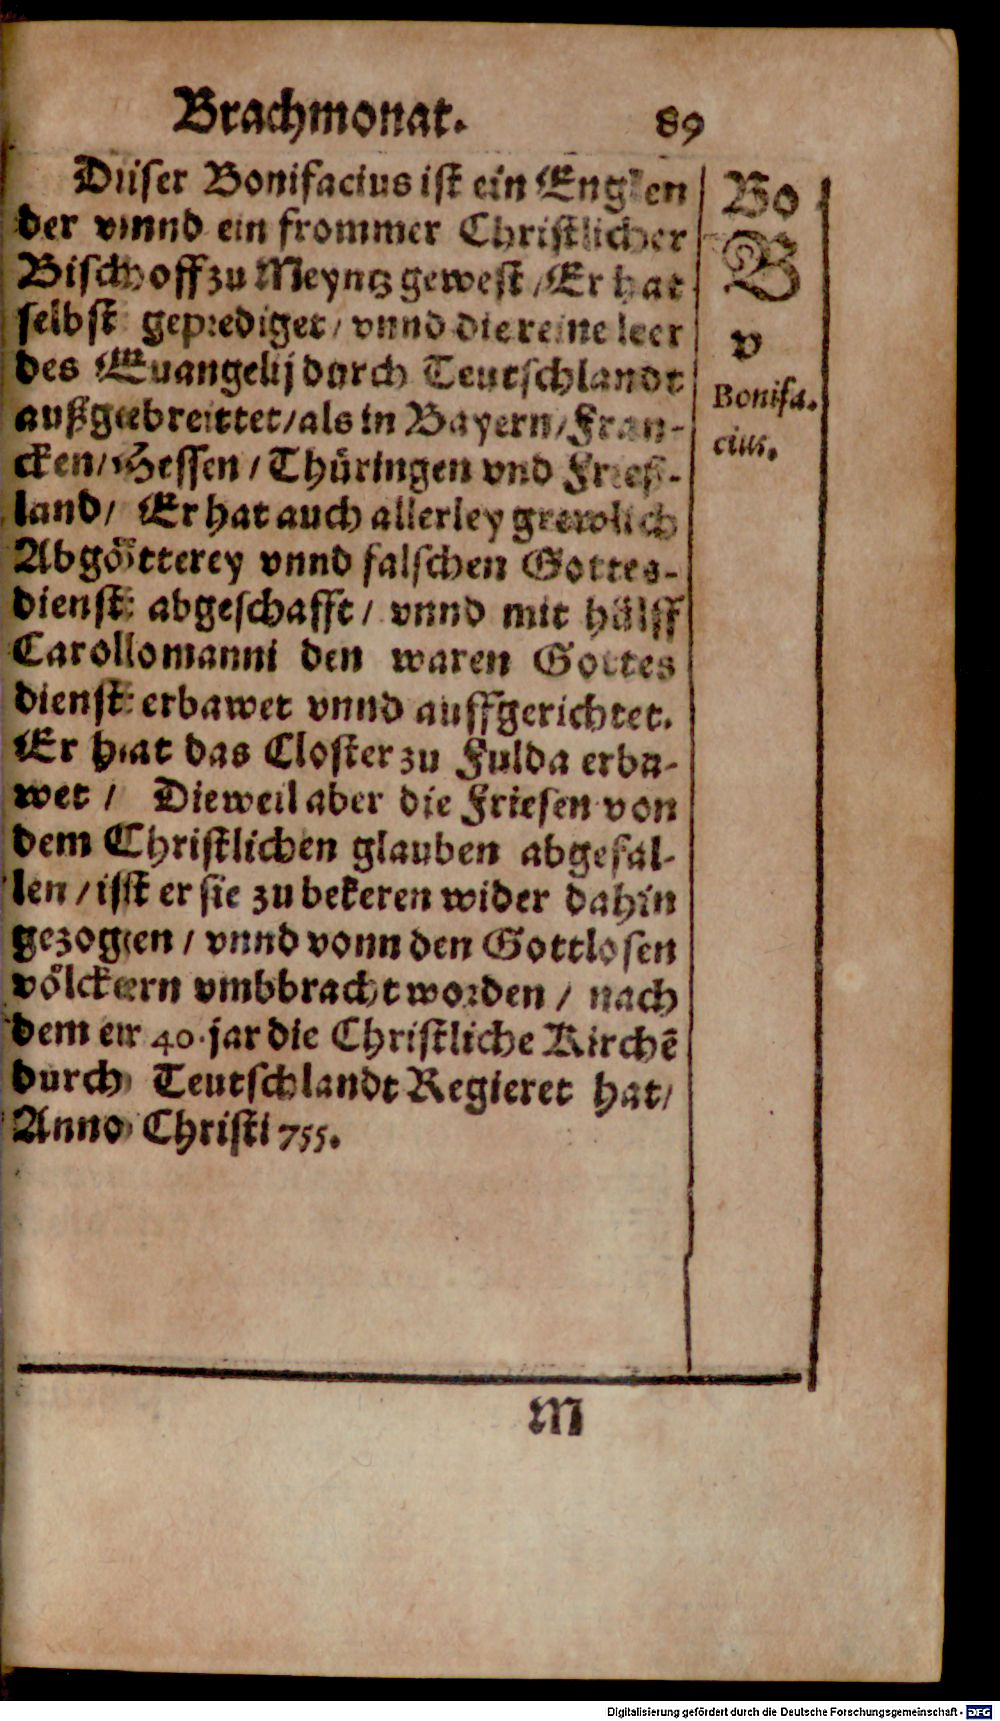 Brachmonat. 89
Diser Bonifacius ist ein Englen
der vnnd ein frommer Christlicher
Bischoff zu Meyntz gewest / Er hat
selbst geprediget / vnnd die reine leer
des Euangelij durch Teutschlandt
außgebreittet / als in Bayern / Fran-
cken / Hessen / Thüringen vnd Frieß-
land / Er hat auch allerley grewlich
Abgötterey vnnd falschen Gottes-
dienst abgeschafft / vnnd mit hülff
Carollomanni den waren Gottes
dienst erbawet vnnd auffgerichtet.
Er hat das Closter zu Fulda erba-
wet / Dieweil aber die Friesen von
dem Christlichen glauben abgefal-
len / ist er sie zu bekeren wider dahin
gezogen / vnnd vonn den Gottlosen
völckern vmbbracht worden / nach
dem er 40. jar die Christliche Kirchē
durch Teutschlandt Regieret hat /
Anno Christi 755.
Bo
B
v
Bonifa-
cius.
M
Digitalisierung gefördert durch die Deutsche Forschungsgemeinschaft - DFG